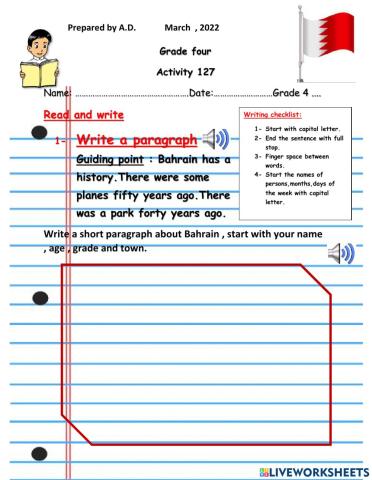 Prepared by A.D. March , 2022
Grade four
Activity 127
Name: ……………………………………………Date:………………………Grade 4 ....
Read and write
1- Write a paragraph
Guiding point : Bahrain has a
history.There were some
planes fifty years ago.There
was a park forty years ago.
Writing checklist:
1- Start with capital letter.
2- End the sentence with full
stop.
3- Finger space between
words.
4- Start the names of
persons,months,days of
the week with capital
letter.
Write a short paragraph about Bahrain , start with your name
, age , grade and town.
LIVEWORKSHEETS